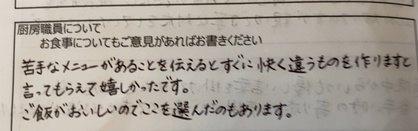 厨房職員について
お食事についてもご意見があればお書きください
苦手なメニューがあることを伝えるとすぐに快く違うものを作りますと
言ってもらえて嬉しかったです。
ご飯がおいしいのでここを選んだのもあります。